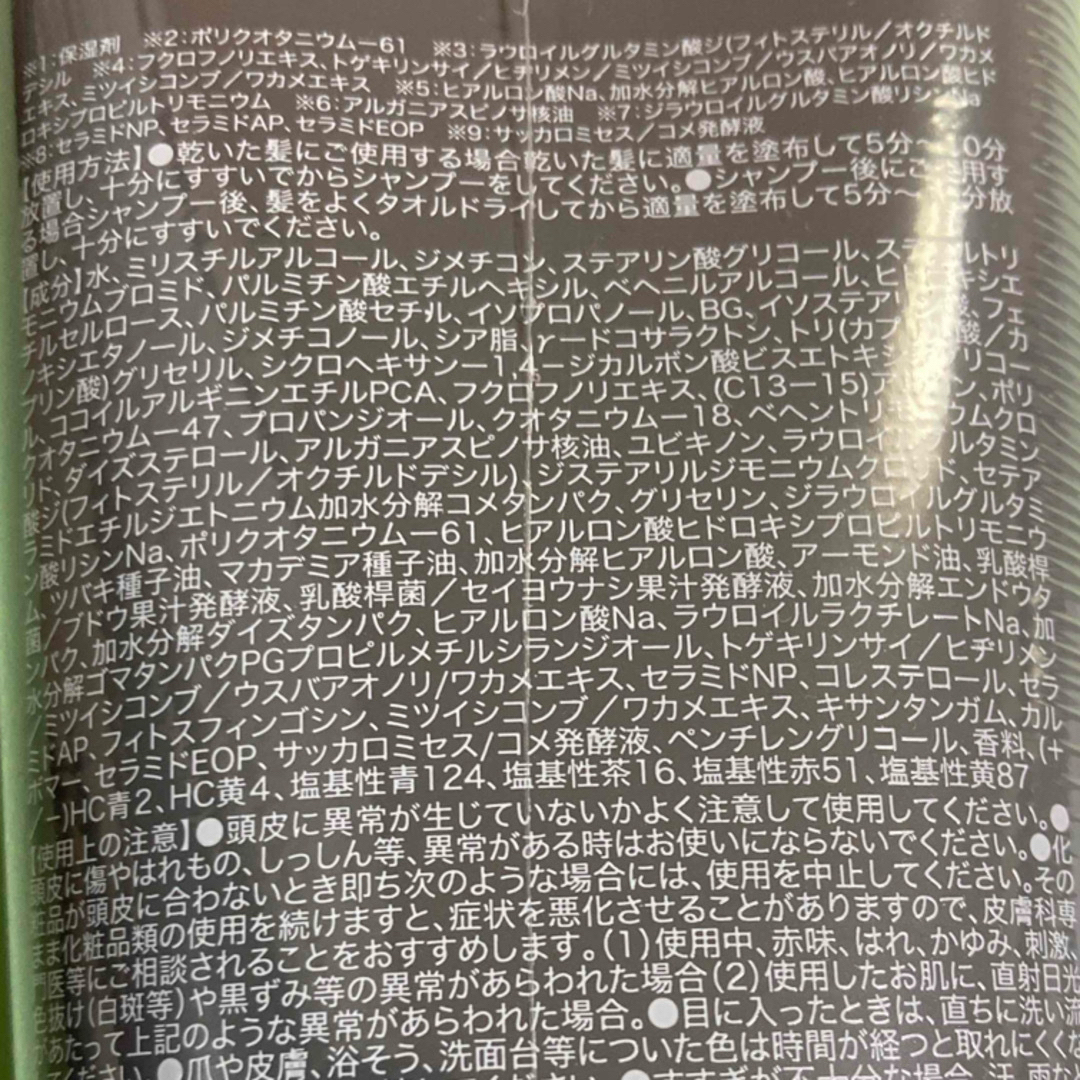 ※1：保湿剤 ※2：ポリクオタニウムー61 ※3：ラウロイルグルタミン酸ジ(フィトステリル／オクチルド
デシル ※4：フクロフノリエキス、トゲキリンサイ／ヒヂリメン／ミツイシコンブ／ウスバアオノリ／ワカメ
エキス、ミツイシコンブ／ワカメエキス ※5：ヒアルロン酸Na、加水分解ヒアルロン酸、ヒアルロン酸ヒド
ロキシプロピルトリモニウム ※6：アルガニアスピノサ核油 ※7：ジラウロイルグルタミン酸リシンNa
※8：セラミドNP、セラミドAP、セラミドEOP ※9：サッカロミセス／コメ発酵液
【使用方法】●乾いた髪にご使用する場合乾いた髪に適量を塗布して5分〜 0分
放置し、十分にすすいでからシャンプーをしてください。●シャンプー後にご 用す
る場合シャンプー後、髪をよくタオルドライしてから適量を塗布して5分〜 分放
置し、十分にすすいでください。
【成分】水、ミリスチルアルコール、ジメチコン、ステアリン酸グリコール、ス ルトリ
モニウムブロミド、パルミチン酸エチルヘキシル、ベヘニルアルコール、ヒ キシエ
チルセルロース、パルミチン酸セチル、イソプロパノール、BG、イソステアリ 、フェ
ノキシエタノール、ジメチコノール、シア脂、γードコサラクトン、トリ(カプ 酸／カ
プリン酸)グリセリル、シクロヘキサンー1,4ージカルボン酸ビスエトキシ リコー
ル、ココイルアルギニンエチルPCA、フクロフノリエキス、(C13ー15)ア ン、ポリ
クオタニウムー47、プロパンジオール、クオタニウムー18、ベヘントリ ウムクロ
リド、ダイズステロール、アルガニアスピノサ核油、ユビキノン、ラウロイ ルタミン
酸ジ(フィトステリル／オクチルドデシル)、ジステアリルジモニウムク ド、セテア
ラミドエチルジエトニウム加水分解コメタンパク、グリセリン、ジラウロイルグルタミ
ン酸リシンNa、ポリクオタニウムー61、ヒアルロン酸ヒドロキシプロピルトリモニウ
ム、ツバキ種子油、マカデミア種子油、加水分解ヒアルロン酸、アーモンド油、乳酸桿
菌／ブドウ果汁発酵液、乳酸桿菌／セイヨウナシ果汁発酵液、加水分解エンドウタ
ンパク、加水分解ダイズタンパク、ヒアルロン酸Na、ラウロイルラクチレートNa、加
水分解ゴマタンパクPGプロピルメチルシランジオール、トゲキリンサイ／ヒヂリメン
／ミツイシコンブ／ウスバアオノリ/ワカメエキス、セラミドNP、コレステロール、セラ
ミドAP、フィトスフィンゴシン、ミツイシコンブ／ワカメエキス、キサンタンガム、カル
ボマー、セラミドEOP、サッカロミセス/コメ発酵液、ペンチレングリコール、香料、(+
/ー)HC青2、HC黄4、塩基性青124、塩基性茶16、塩基性赤51、塩基性黄87
【使用上の注意】●頭皮に異常が生じていないかよく注意して使用してください。●
頭皮に傷やはれもの、しっしん等、異常がある時はお使いにならないでください。●化
粧品が頭皮に合わないとき即ち次のような場合には、使用を中止してください。その
まま化粧品類の使用を続けますと、症状を悪化させることがありますので、皮膚科専
門医等にご相談されることをおすすめします。(1)使用中、赤味、はれ、かゆみ、刺激、
色抜け(白斑等)や黒ずみ等の異常があらわれた場合(2)使用したお肌に、直射日光
があたって上記のような異常があらわれた場合。●目に入ったときは、直ちに洗い流
●爪や皮膚、浴そう、洗面台等についた色は時間が経つと取れにくくな